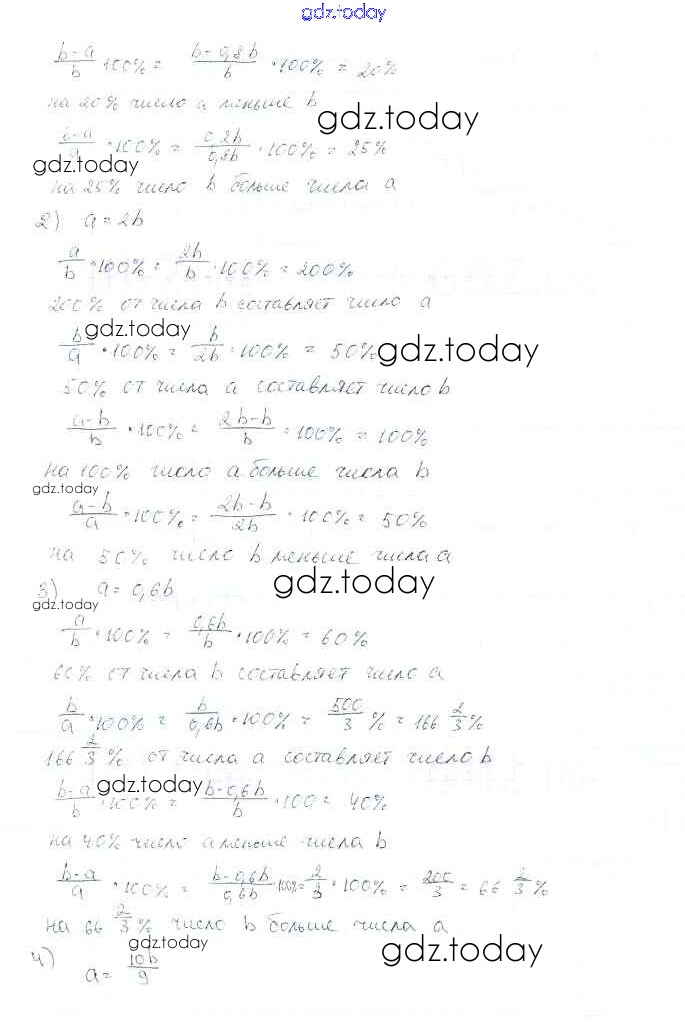 gdz.today
(b-a)/b 100% = (b-0,8b)/b · 100% = 20%
на 20% число a меньше b
gdz.today
(b-a)/a · 100% = 0,2b/0,8b · 100% = 25%
gdz.today
на 25% число b больше числа a
2) a = 2b
a/b · 100% = 2b/b · 100% = 200%
200% от числа b составляет число a
gdz.today
b/a · 100% = b/2b · 100% = 50%
gdz.today
50% от числа a составляет число b
(a-b)/b · 100% = (2b-b)/b · 100% = 100%
на 100% число a больше числа b
gdz.today
(a-b)/a · 100% = (2b-b)/2b · 100% = 50%
на 50% число b меньше числа a
gdz.today
3) a = 0,6b
gdz.today
a/b · 100% = 0,6b/b · 100% = 60%
60% от числа b составляет число a
b/a · 100% = b/0,6b · 100% = 500/3 % = 166 2/3 %
166 2/3 % от числа a составляет число b
gdz.today
(b-a)/b · 100% = (b-0,6b)/b · 100 = 40%
на 40% число a меньше числа b
(b-a)/a · 100% = (b-0,6b)/0,6b · 100% = 2/3 · 100% = 200/3 = 66 2/3 %
на 66 2/3 % число b больше числа a
gdz.today
gdz.today
4) a = 10b/9